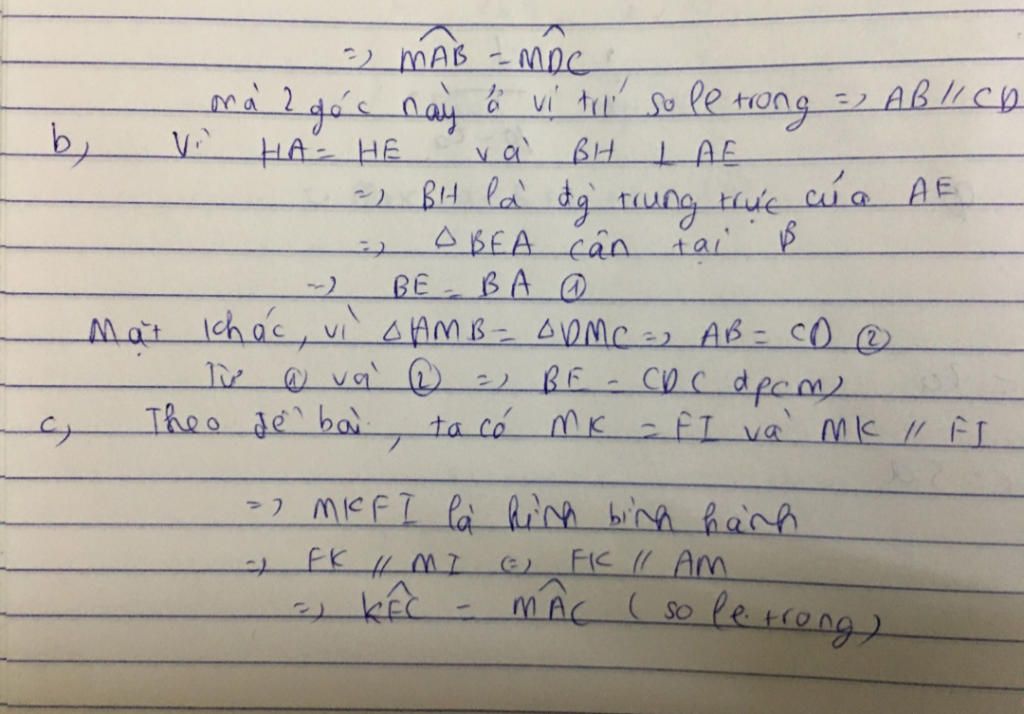 => MAB̂ = MDĈ
mà 2 góc này ở vị trí so le trong => AB // CD
b, Vì HA = HE và BH ⊥ AE
=> BH là đg trung trực của AE
=> △BEA cân tại B
=> BE = BA ①
Mặt khác, vì △AMB = △DMC => AB = CD ②
Từ ① và ② => BE = CD (đpcm)
c, Theo đề bài, ta có MK = FI và MK // FI
=> MKFI là hình bình hành
=> FK // MI <=> FK // AM
=> KFĈ = MAĈ (so le trong)